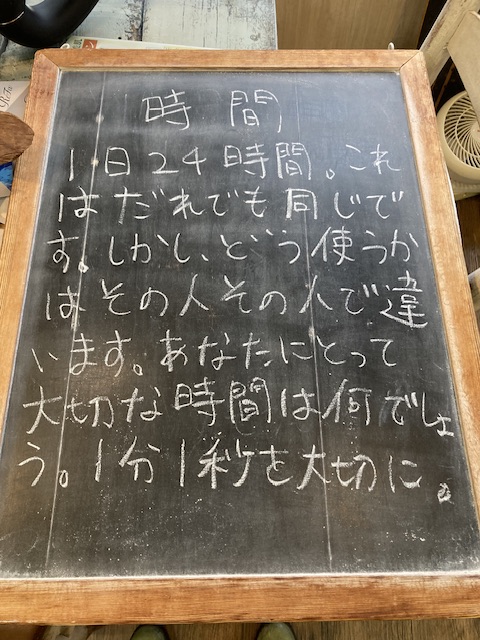 時間
1日24時間。これ
はだれでも同じで
す。しかし、どう使うか
はその人その人で違
います。あなたにとって
大切な時間は何でしょ
う。1分1秒を大切に。